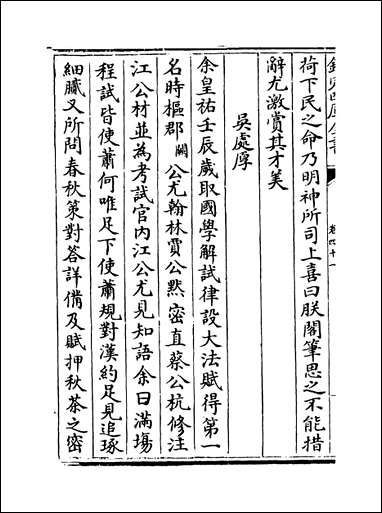 欽定四庫全書
卷四十一
荷下民之命乃明神所司上喜曰朕閣筆思之不能措
辭尤激賞其才美
吳處厚
余皇祐壬辰歲取國學解試律設大法賦得第一
名時樞郡闕公尤翰林賈公黯密直蔡公杭修注
江公材並為考試官内江公尤見知語余曰滿塲
程試皆使蕭何唯足下使蕭規對漢約足見追琢
細膩又所問春秋策對答詳備及賦押秋荼之密